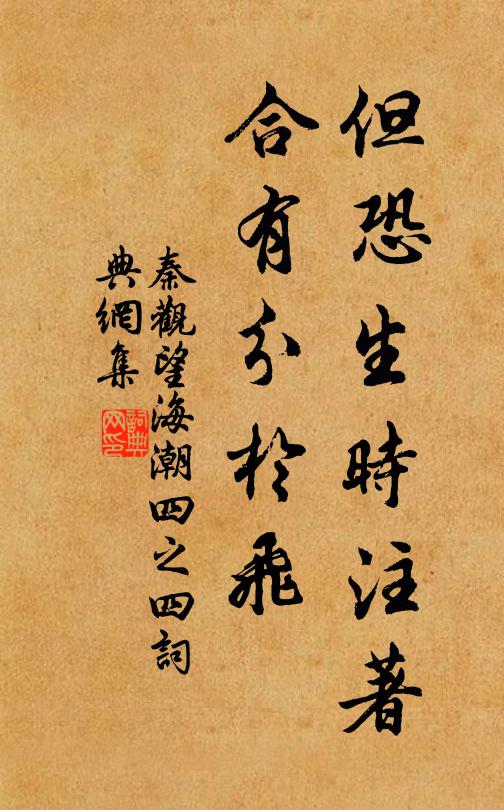 但恐生時注著
合有分於飛
秦觀望海潮四之四詞
典網集
詞典網印